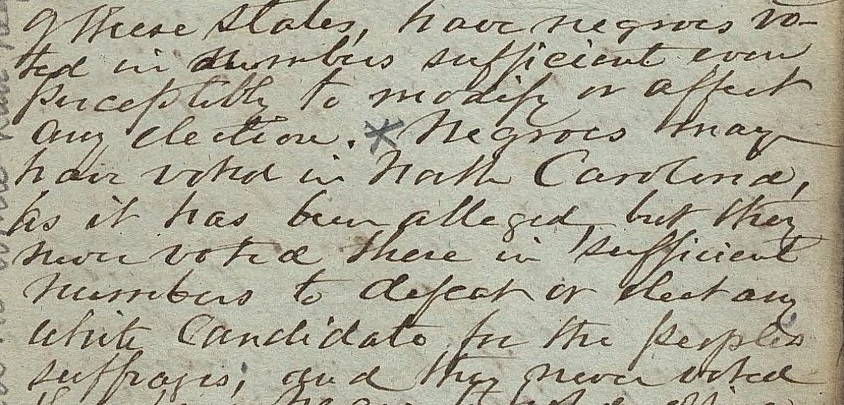 of these States, have negroes vo-
ted in numbers sufficient even
perceptibly to modify or affect
any election. * Negroes may
have voted in North Carolina,
as it has been alleged, but they
never voted there in sufficient
numbers to defeat or elect any
white Candidate for the peoples
suffrages, and they never voted